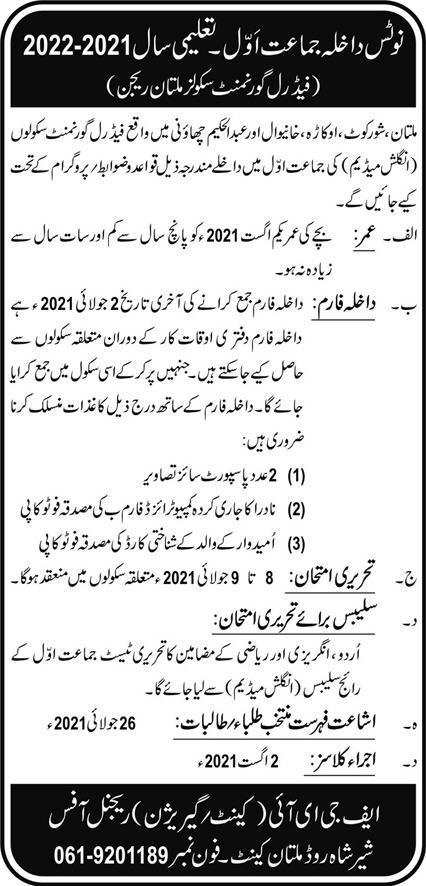 نوٹس داخلہ جماعت اوّل۔ تعلیمی سال 2021-2022
(فیڈرل گورنمنٹ سکولز ملتان ریجن)
ملتان، شورکوٹ، اوکاڑہ، خانیوال اور عبدالحکیم چھاؤنی میں واقع فیڈرل گورنمنٹ سکولوں
(انگلش میڈیم) کی جماعت اوّل میں داخلے مندرجہ ذیل قواعد و ضوابط / پروگرام کے تحت
کیے جائیں گے۔
الف۔ عمر: بچے کی عمر یکم اگست 2021ء کو پانچ سال سے کم اور سات سال سے
زیادہ نہ ہو۔
ب۔ داخلہ فارم: داخلہ فارم جمع کرانے کی آخری تاریخ 2 جولائی 2021ء ہے
داخلہ فارم دفتری اوقات کار کے دوران متعلقہ سکولوں سے
حاصل کیے جاسکتے ہیں۔ جنہیں پر کر کے اسی سکول میں جمع کرایا
جائے گا۔ داخلہ فارم کے ساتھ درج ذیل کاغذات منسلک کرنا
ضروری ہیں:
(1) 2 عدد پاسپورٹ سائز تصاویر
(2) نادرا کا جاری کردہ کمپیوٹرائزڈ فارم ب کی مصدقہ فوٹو کاپی
(3) اُمیدوار کے والد کے شناختی کارڈ کی مصدقہ فوٹو کاپی
ج۔ تحریری امتحان: 8 تا 9 جولائی 2021ء متعلقہ سکولوں میں منعقد ہوگا۔
د۔ سلیبس برائے تحریری امتحان:
اُردو، انگریزی اور ریاضی کے مضامین کا تحریری ٹیسٹ جماعت اوّل کے
رائج سلیبس (انگلش میڈیم) سے لیا جائے گا۔
ہ۔ اشاعت فہرست منتخب طلباء / طالبات: 26 جولائی 2021ء
د۔ اجراء کلاسز: 2 اگست 2021ء
ایف جی ای آئی (کینٹ / گیریژن) ریجنل آفس
شیر شاہ روڈ ملتان کینٹ۔ فون نمبر 061-9201189